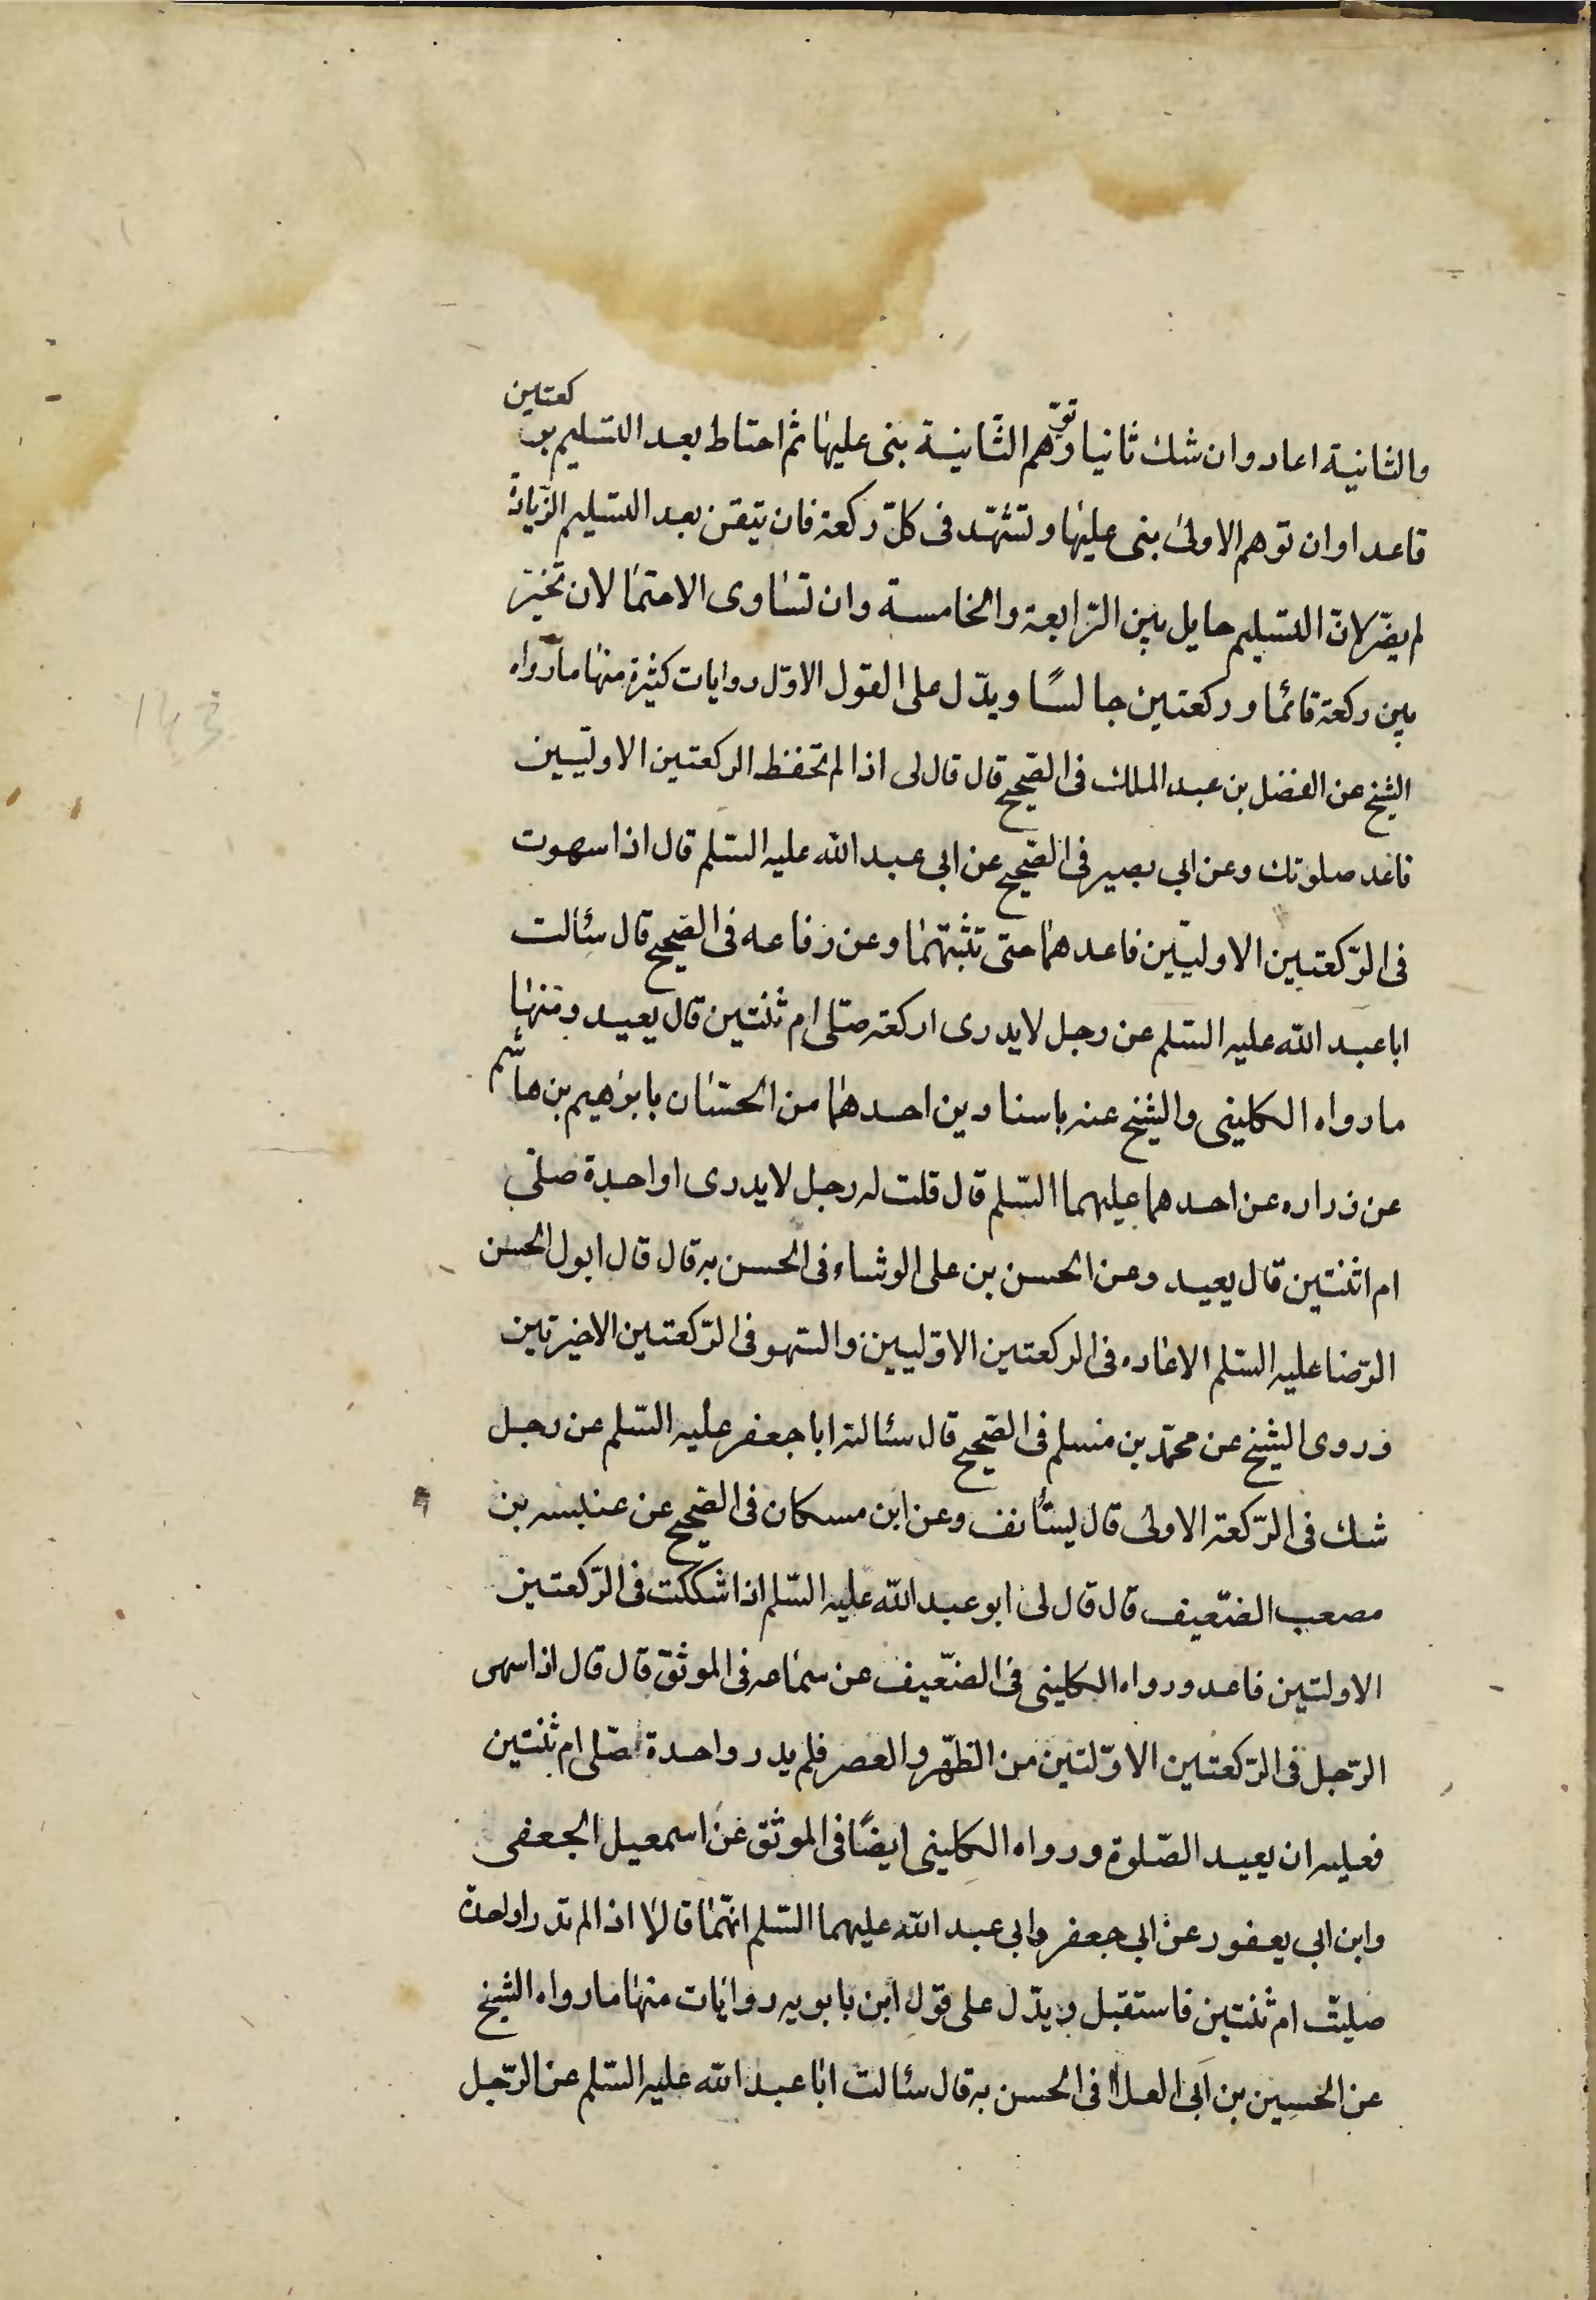 والثانية اعاد وان شك ثانيا وتوهم الثانية بنى عليها ثم احتاط بعد التسليم بركعتين
قاعدا وان توهم الاولى بنى عليها وتشهد فى كلّ ركعة فان تيقن بعد التسليم الزيادة
لم يضرّ لانّ التسليم حايل بين الرّابعة والخامسة وان تساوى الاحتمالان تخيّر
بين ركعة قائما وركعتين جالسًا ويدّل على القول الاوّل روايات كثيرة منها ما رواه
الشيخ عن الفضل بن عبد الملك فى الصّحيح قال قال لى اذا لم تحفظ الركعتين الاوليّين
فاعد صلوتك وعن ابي بصير فى الصّحيح عن ابي عبد الله عليه السّلم قال اذا سهوت
فى الرّكعتين الاوليّين فاعدهما حتى تثبتهما وعن رفاعه فى الصّحيح قال سئالت
ابا عبد الله عليه السّلم عن رجل لا يدرى اركعة صلّى ام ثنتين قال يعيد ومنها
ما رواه الكلينى والشيخ عنه باسنادين احدهما من الحسّان بابرٰهيم بن هاشم
عن زراره عن احدهما عليهما السّلم قال قلت له رجل لا يدرى اواحدة صلّى
ام اثنتين قال يعيد وعن الحسن بن على الوشاء فى الحسن به قال قال ابول الحسن
الرّضا عليه السّلم الاعاده فى الركعتين الاوّليين والسّهو فى الرّكعتين الاخيرتين
وروى الشيخ عن محمّد بن مسلم فى الصّحيح قال سئالته ابا جعفر عليه السّلم عن رجل
شك فى الرّكعة الاولى قال يستأنف وعن ابن مسكان فى الصّحيح عن عنبسه بن
مصعب الضّعيف قال قال لى ابو عبد الله عليه السّلم اذا شككت فى الرّكعتين
الاولتين فاعد ورواه الكلينى فى الضّعيف عن سماعه فى الموثق قال قال اذا سهى
الرّجل فى الرّكعتين الاوّلتين من الظّهر والعصر فلم يدر واحدة صلّى ام ثنتين
فعليه ان يعيد الصّلوة ورواه الكلينى ايضًا فى الموثق عن اسمعيل الجعفى
وابن ابي يعفور عن ابي جعفر وابى عبد الله عليهما السّلم انّهما قالا اذا لم تدر اواحدة
صليت ام ثنتين فاستقبل ويدّل على قول ابن بابويه روايات منها ما رواه الشيخ
عن الحسين بن ابى العلا فى الحسن به قال سئالت ابا عبد الله عليه السّلم عن الرّجل